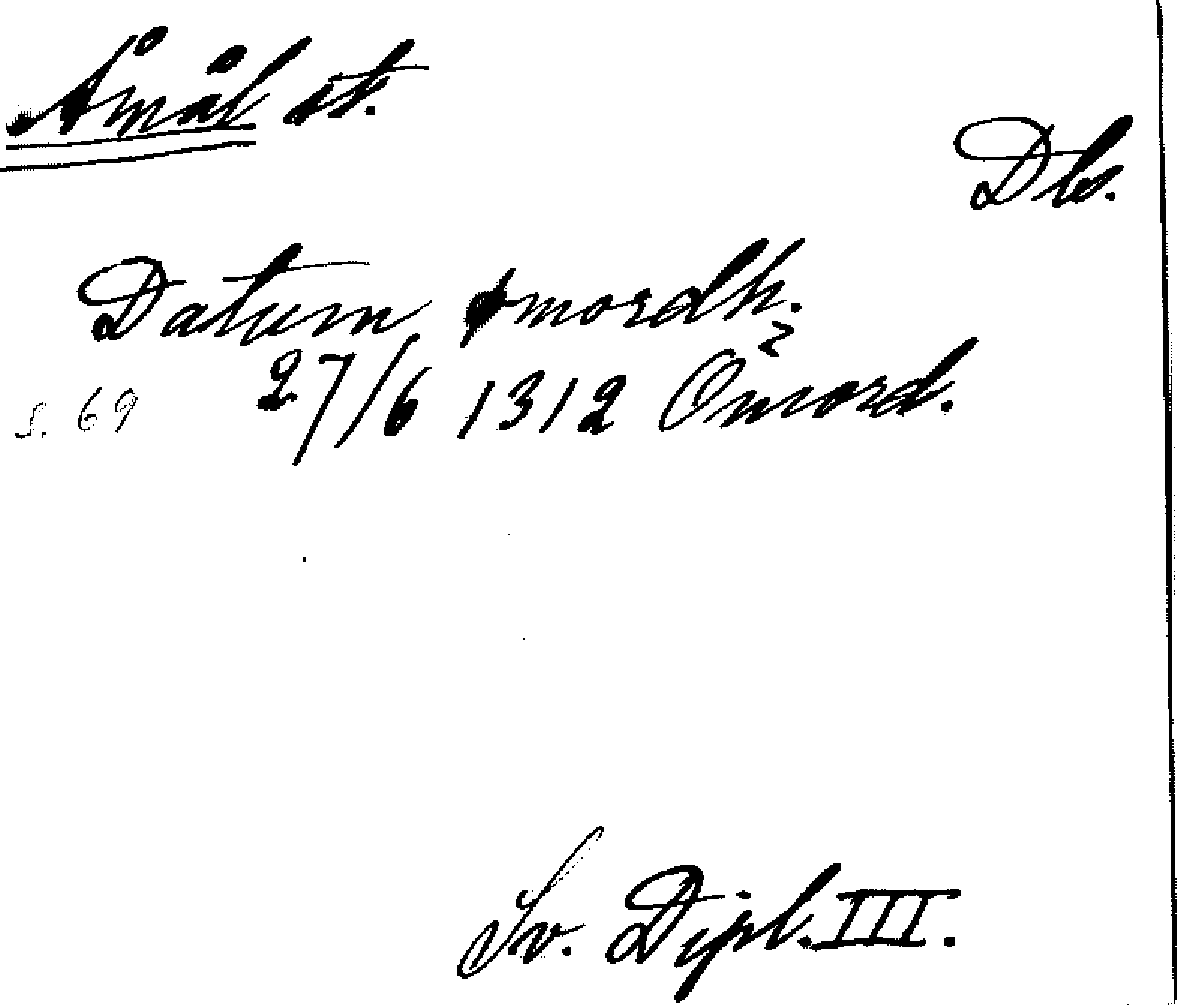 Åmål st.
Dls.
Datum ømordh.
s. 69 27/6 1312 Ømord.
Sv. Dipl. III.